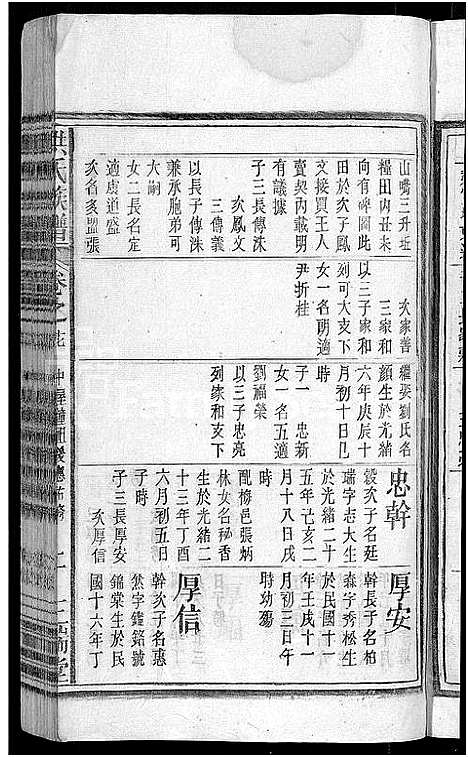 洪氏族譜
卷之
山嘴三升坵
糧田內丑坵
向有碑圖此
田於次子鳳
文接買王人
賣契內載明
有議據
子三長傳洙
次鳳文
三傳義
以長子傳洙
兼承胞弟可
大嗣
女二長名定
適虞道盛
次名多盟張
次家善
三家和
以三子家和
列可大支下
女一名萌適
尹折桂
繼娶劉氏名
顏生於光緒
六年庚辰十
月初十日巳
時
子一 忠新
女一名五適
劉福榮
以三子忠亮
列家和支下
忠幹
穀次子名廷
瑞字志大生
於光緒二十
五年己亥二
月十八日戌
時
配椅邑張炳
林女名秘香
生於光緒二
十三年丁酉
六月初五日
子時
子三長厚安
次厚信
厚安
幹長子名柏
森字秀松生
於民國十一
年壬戌十一
月初三日午
時幼殤
厚信
幹次子名蕙
棻字鑑銘號
錦棠生於民
國十六年丁